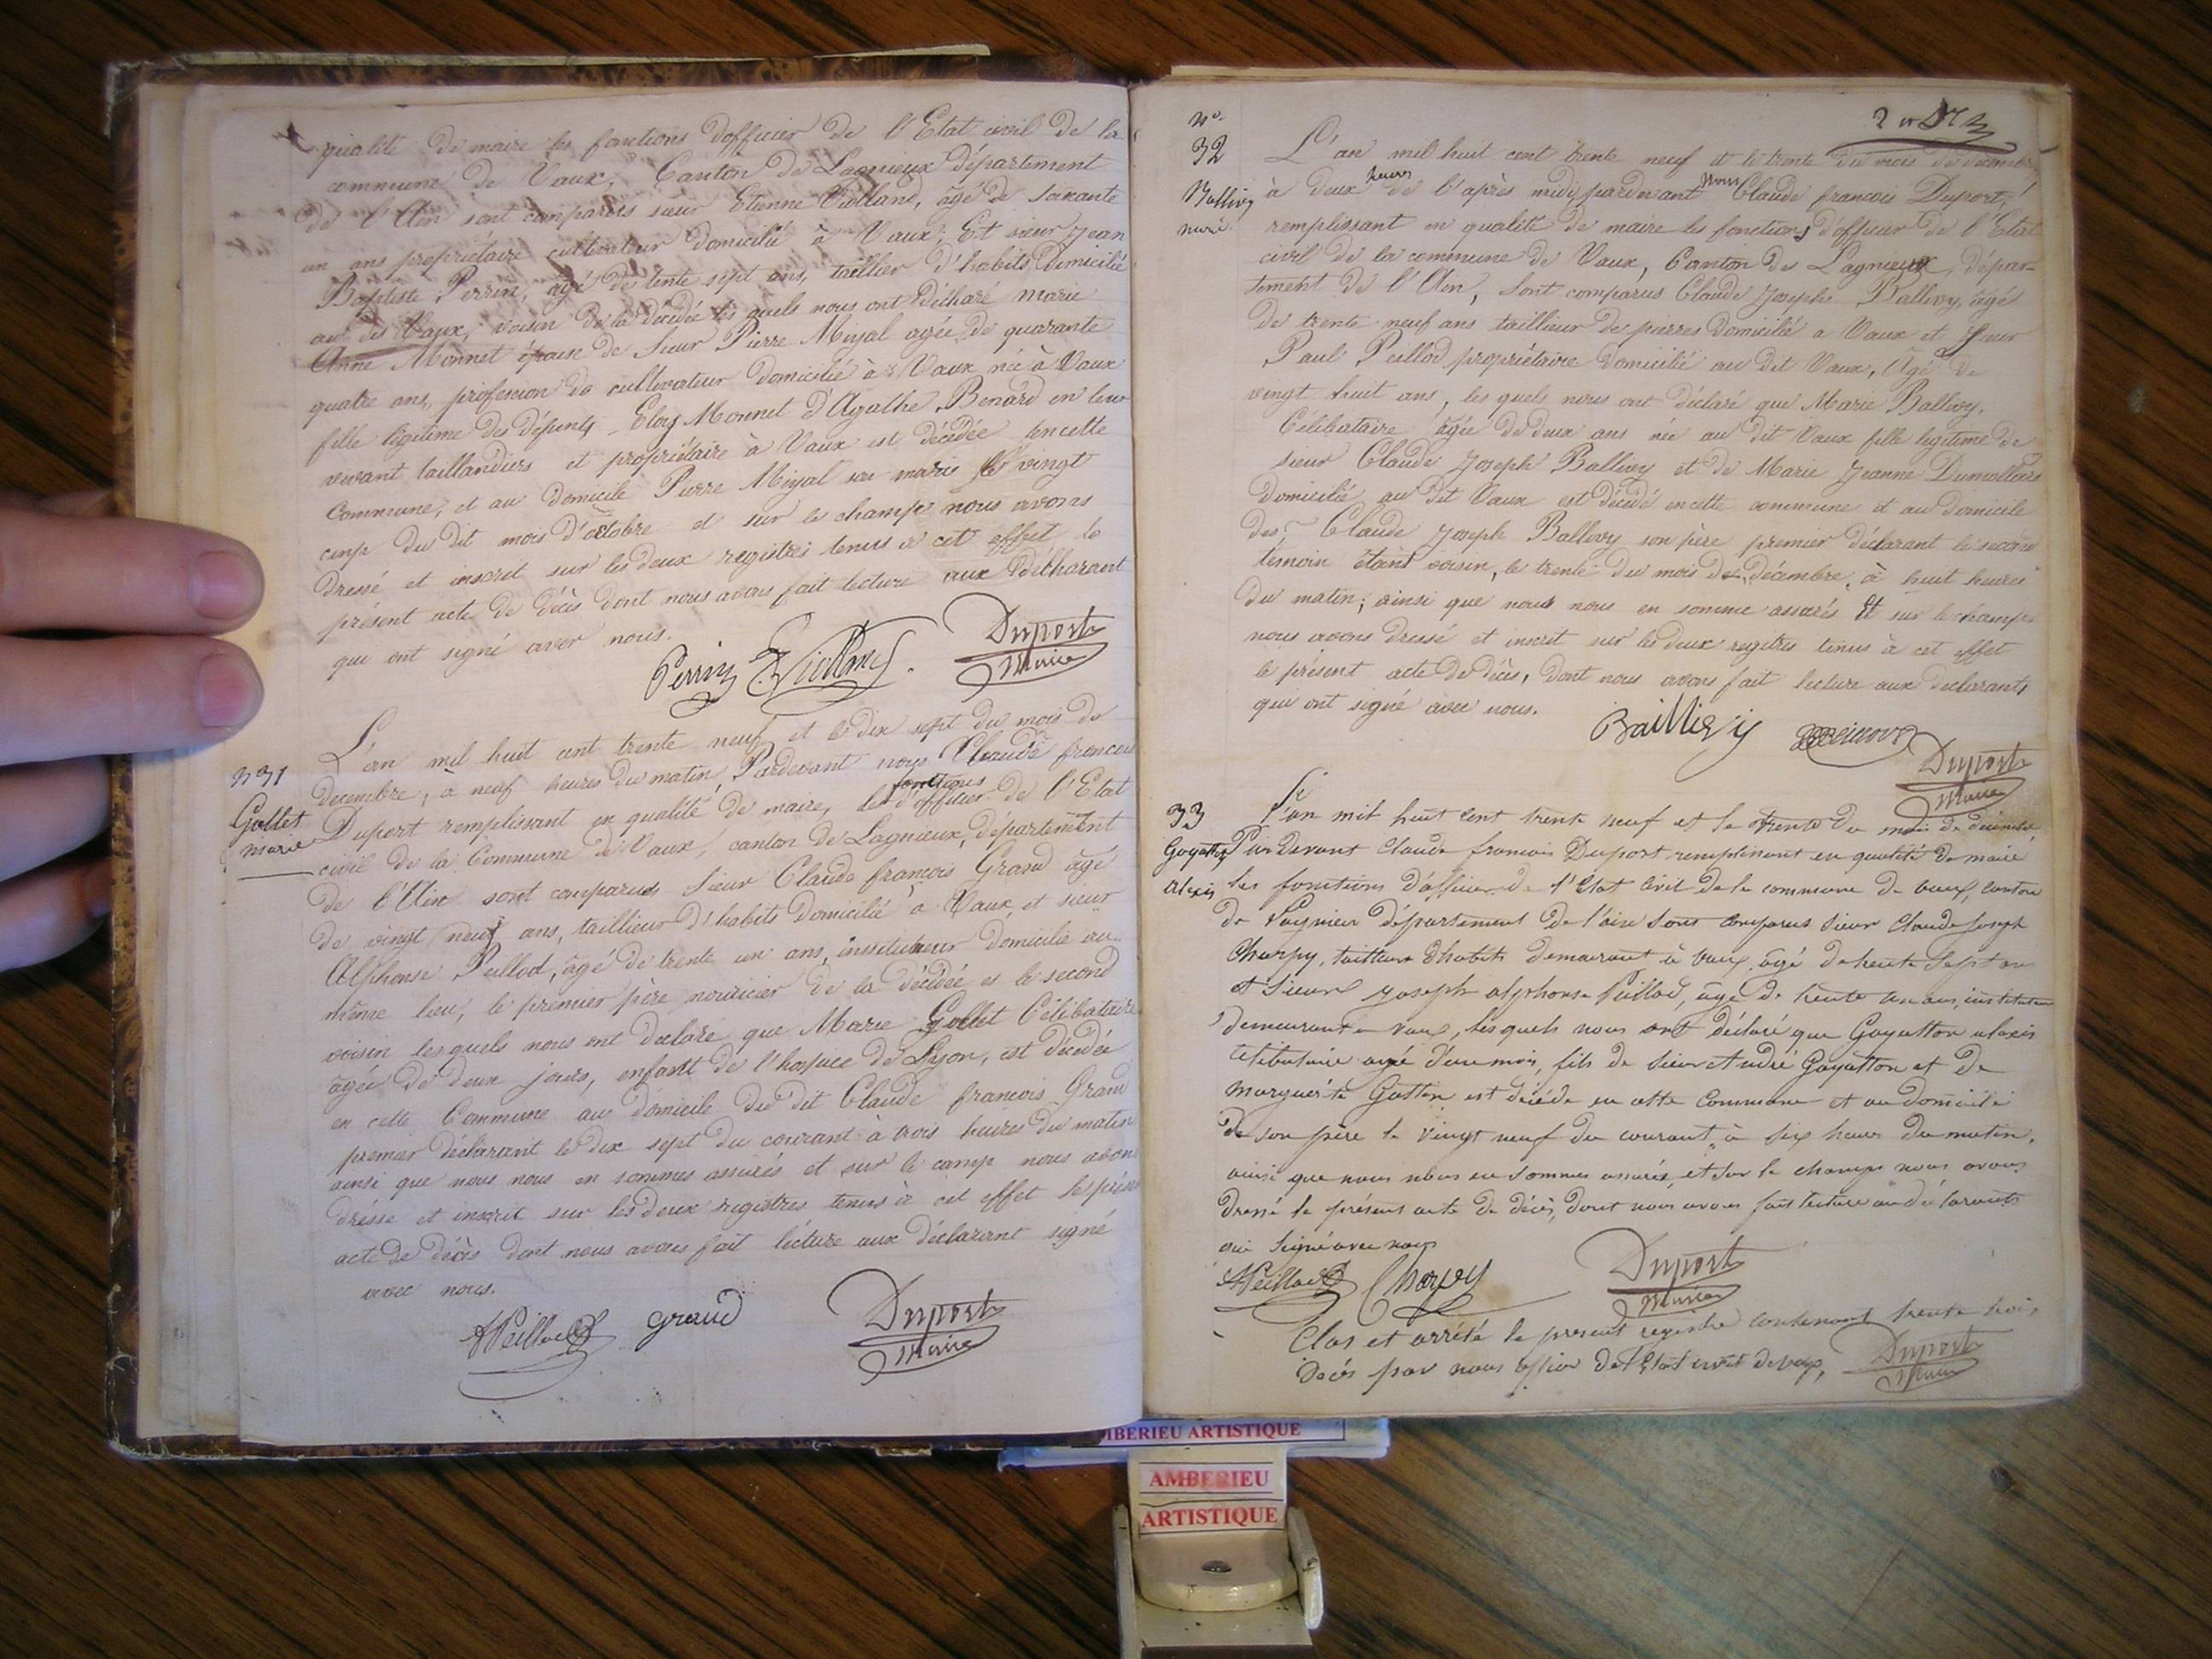 qualité de maire les fonctions d'officier de l'Etat civil de la
commune de Vaux, Canton de Lagnieux département
de l'Ain sont comparus sieur Etienne Violland, âgé de soixante
un ans propriétaire cultivateur domicilié à Vaux; Et sieur Jean
Baptiste Perrin, âgé de tente sept ans, taillier d'habits Domicilié
au dis Vaux, voisin de la décédée les quels nous ont déclaré marie
Anne Monnet épouse de Sieur Pierre Miyal agée de quarante
quatre ans, profession de cultivateur domicilié à Vaux née à Vaux
fille légitime des défunts Eloy Monnet d'Agathe Benard en leur
vivant taillandiers et propriétaire à Vaux est décédée en cette
Commune, et au domicile Pierre Miyal son maris le vingt
cinq du dit mois d'octobre et sur le champ nous avons
dressé et inscrit sur les deux registres tenus à cet effet le
présent acte de décès dont nous avons fait lecture aux déclarant
qui ont signé avec nous.
Perrin E. Violland Duport
Maire
N 31
Gollet
marie
L'an mil huit cent trente neuf et le dix sept du mois de
decembre, à neuf heures du matin, Pardevant nous Claude francois
fonctions
Duport remplissant en qualité de maire, les d'officier de l'Etat
civil de la Commune de Vaux, canton de Lagnieux, département
de l'Ain sont comparus Sieur Claude francois Grand âgé
de vingt neuf ans, taillieur d'habits Domicilié à Vaux, et sieur
Alphonse Peillod, âgé de trente un ans, instituteur domicilié au
même lieu, le premier père nouricier de la décédée et le second
voisin lesquels nous ont déclaré que Marie Gollet Célibataire
âgée de deux jours, enfant de l'hospice de Lyon, est décédée
en cette Commune au domicile du dit Claude francois Grand
premier déclarant le dix sept du courant à trois heures du matin
ainsi que nous nous en sommes assurés et sur le camp nous avons
dréssé et inscrit sur les deux registres tenus à cet effet le présent
acte de décès dont nous avons fait lécture aux déclarant signé
avec nous.
APeillod grand Duport
Maire
No.
32
Ballivy
marie
L'an mil huit cent trente neuf et le trente du mois de decembre
heures nous
à deux de l'après midi, pardevant Claude francois Duport,
remplissant en qualité de maire les fonctions d'officier de l'Etat
civil de la commune de Vaux, Canton de Lagnieux, dépar-
tement de l'Ain, sont comparus Claude Josephe Ballivy, âgé
de trente neuf ans taillieur de pierres domicilié a Vaux et sieur
Paul Peillod propriétaire domicilié au dit Vaux, Agé de
vingt huit ans, les quels nous ont déclaré que Marie Ballivy,
Célibataire âgée de deux ans née au dit Vaux fille legitime de
sieur Claude Joseph Ballivy et de Marie Jeanne Dumollard
domicilié au dit Vaux est décédé en cette commune et au domicile
des, Claude Joseph Ballivy son père premier déclarant le second
témoin étant voisin, le trente du mois de décembre, à huit heures
du matin; ainsi que nous nous en somme assurés Et sur le champ
nous avons dressé et inscrit sur les deux regitres tenus à cet effet
le présent acte de décès, dont nous avons fait lecture aux declarants
qui ont signé avec nous.
Baillivy Duport
Maire
33
Goyatton
alexis
L'an mil huit cent trente neuf et le trente du mois de décembre
Par devant Claude francois Duport remplissant en qualité de maire
les fonctions d'officier de l'Etat Civil de la commune de vaux, canton
de Lagnieu département de l'ain sont comparus sieur Claude Joseph
Charpy, tailleur d'habits demeurant à vaux, âgé de trente sept ans
et Sieur Joseph alphonse Peillod, âgé de trente un ans, instituteur
demeurant a vaux, lesquels nous ont déclaré que Goyatton alexis
célibataire agé d'un mois, fils de sieur André Goyatton et de
marguerite Gotton est décédé en cette commune et au domicile
de son père le vingt neuf du courant à six heures du matin.
ainsi que nous nous en sommes assurés, et sur le champ nous avons
dressé le présent acte de décès, dont nous avons fait lecture au déclarants
qui signé avec nous
APeillod Charpy Duport
Maire
Clos et arrêté le present registre contenant trente trois
Décès par nous officier de l'Etat civil de vaux, Duport
Maire
AMBERIEU ARTISTIQUE
AMBERIEU
ARTISTIQUE